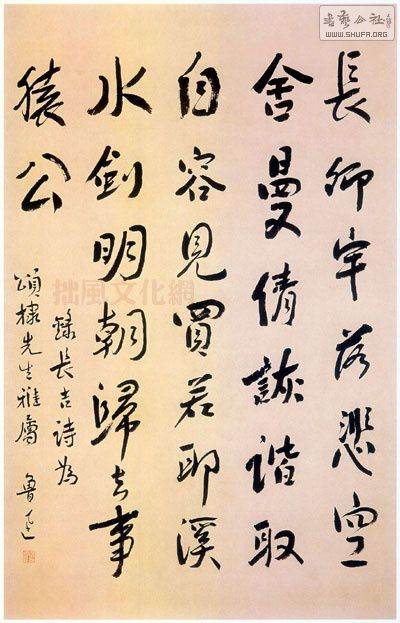 長卿牢落悲空
舍曼倩詼諧取
自容見買若耶溪
水劍明朝歸去事
猿公
錄長吉詩為
頌棣先生雅屬 魯迅
書藝公社
WWW.SHUFA.ORG
拙風文化網